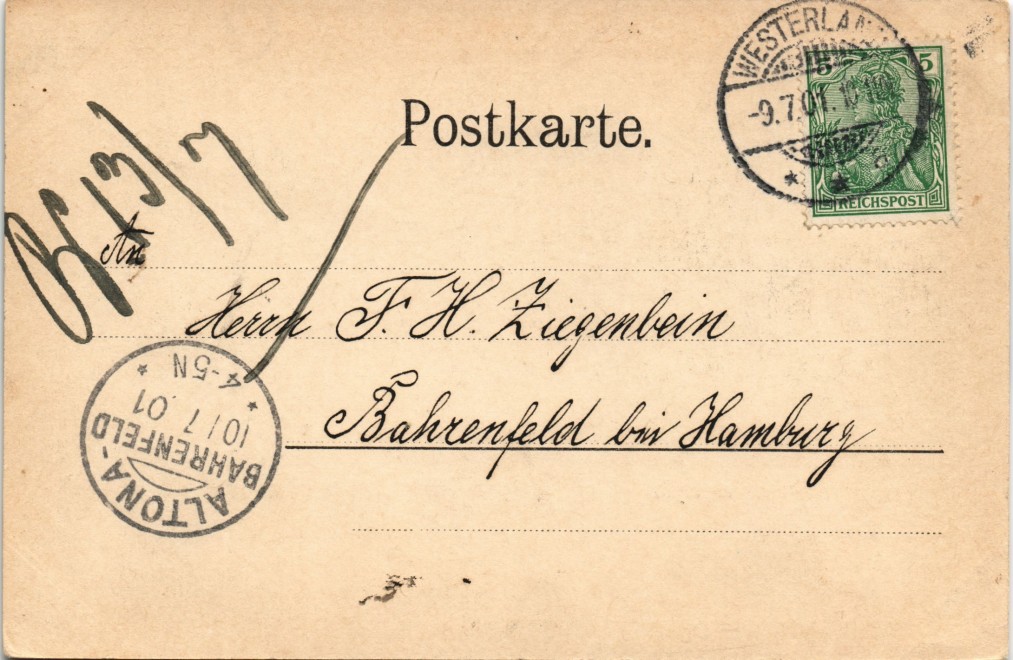 WESTERLAND
-9.7.01. 10-11
5 5
REICHSPOST
Postkarte.
13/7
An
Herrn F. H. Ziegenbein
Bahrenfeld bei Hamburg
ALTONA-
BAHRENFELD
10/7 01
4-5N